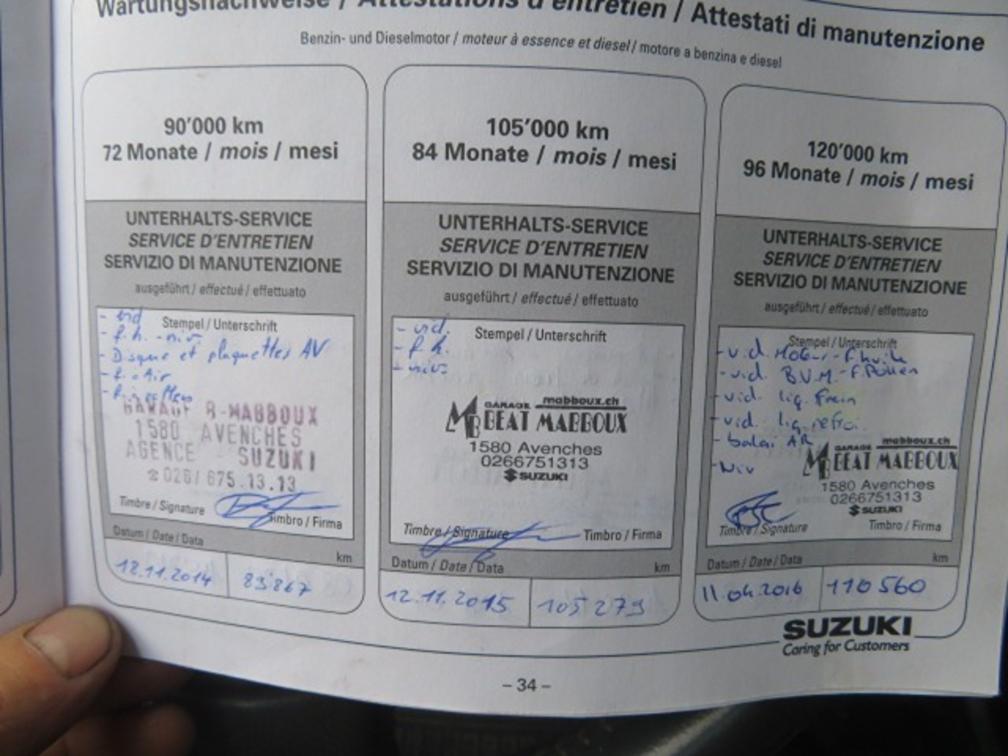 Wartungsnachweise / Attestations d'entretien / Attestati di manutenzione
Benzin- und Dieselmotor / moteur à essence et diesel / motore a benzina e diesel
90'000 km
72 Monate / mois / mesi
UNTERHALTS-SERVICE
SERVICE D'ENTRETIEN
SERVIZIO DI MANUTENZIONE
ausgeführt / effectué / effettuato
Stempel / Unterschrift
- vid
- f.h. - niv
- Disque et plaquettes AV
- f. Air
GARAGE B-MABBOUX
1580 AVENCHES
AGENCE SUZUKI
☎ 026/ 675.13.13
Timbre / Signature
Timbro / Firma
Datum / Date / Data
km
12.11.2014
83'867
105'000 km
84 Monate / mois / mesi
UNTERHALTS-SERVICE
SERVICE D'ENTRETIEN
SERVIZIO DI MANUTENZIONE
ausgeführt / effectué / effettuato
Stempel / Unterschrift
- vid.
- f.h.
- niv.
GARAGE mabboux.ch
MB BEAT MABBOUX
1580 Avenches
0266751313
SUZUKI
Timbre / Signature
Timbro / Firma
Datum / Date / Data
km
12.11.2015
105 279
120'000 km
96 Monate / mois / mesi
UNTERHALTS-SERVICE
SERVICE D'ENTRETIEN
SERVIZIO DI MANUTENZIONE
ausgeführt / effectué / effettuato
Stempel / Unterschrift
- vid. Moteur - F. huile
- vid. B.V.M. - F. Pollen
- vid. liq. frein
- vid. liq. refroi.
- balai AR
- Niv
GARAGE mabboux.ch
MB BEAT MABBOUX
1580 Avenches
0266751313
SUZUKI
Timbre / Signature
Timbro / Firma
Datum / Date / Data
km
11.04.2016
110 560
SUZUKI
Caring for Customers
– 34 –